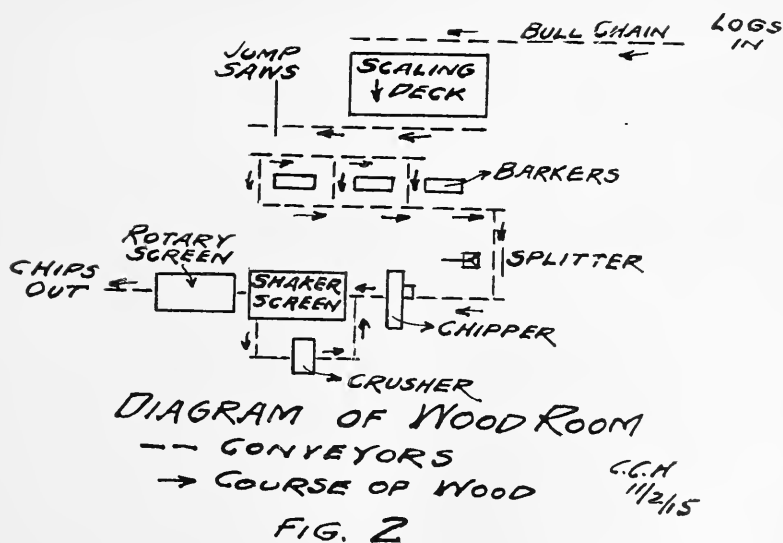 BULL CHAIN
LOGS
IN
JUMP
SAWS
SCALING
DECK
BARKERS
SPLITTER
ROTARY
SCREEN
CHIPS
OUT
SHAKER
SCREEN
CHIPPER
CRUSHER
DIAGRAM OF WOOD ROOM
CONVEYORS
COURSE OF WOOD
C.C.H
11/2/15
FIG. 2